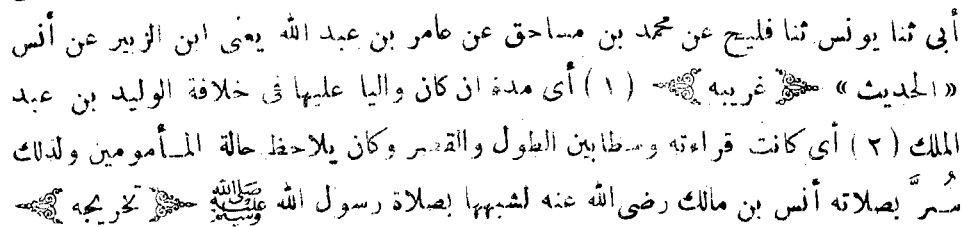 أبى ثنا يونس ثنا فليح عن محمد بن مساحق عن عامر بن عبد الله يعنى ابن الزبير عن أنس
«الحديث» ﴿غريبه﴾ (١) أى مدة ان كان واليا عليها فى خلافة الوليد بن عبد
الملك (٢) أى كانت قراءته وسطا بين الطول والقصر وكان يلاحظ حالة المـأمومين ولذلك
سُرَّ بصلاته أنس بن مالك رضى الله عنه لشبهها بصلاة رسول الله ﷺ ﴿تخريجه﴾